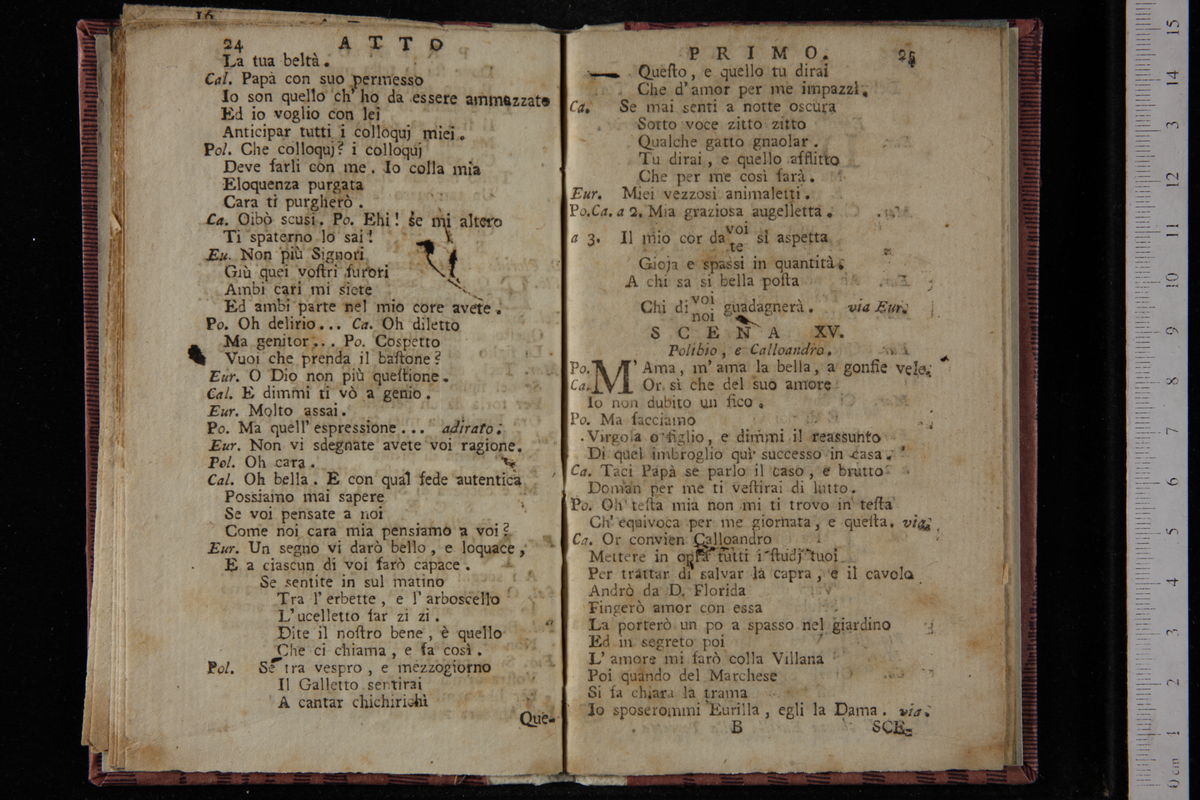 16
24 ATTO
La tua beltà.
Cal. Papà con suo permesso
Io son quello ch' ho da essere ammazzato
Ed io voglio con lei
Anticipar tutti i colloquj miei.
Pol. Che colloquj? i colloquj
Deve farli con me. Io colla mia
Eloquenza purgata
Cara ti purgherò.
Ca. Oibò scusi. Po. Ehi! se mi altero
Ti spaterno lo sai!
Eu. Non più Signori
Giù quei vostri furori
Ambi cari mi siete
Ed ambi parte nel mio core avete.
Po. Oh delirio... Ca. Oh diletto
Ma genitor... Po. Cospetto
Vuoi che prenda il bastone?
Eur. O Dio non più questione.
Cal. E dimmi ti vò a genio.
Eur. Molto assai.
Po. Ma quell' espressione... adirato.
Eur. Non vi sdegnate avete voi ragione.
Pol. Oh cara.
Cal. Oh bella. E con qual fede autentica
Possiamo mai sapere
Se voi pensate a noi
Come noi cara mia pensiamo a voi?
Eur. Un segno vi darò bello, e loquace,
E a ciascun di voi farò capace.
Se sentite in sul matino
Tra l' erbette, e l' arboscello
L' ucelletto far zi zi.
Dite il nostro bene, è quello
Che ci chiama, e fa così.
Pol. Se tra vespro, e mezzogiorno
Il Galletto sentirai
A cantar chichirichì
Que-
PRIMO. 25
Questo, e quello tu dirai
Che d' amor per me impazzì.
Ca. Se mai senti a notte oscura
Sotto voce zitto zitto
Qualche gatto gnaolar.
Tu dirai, e quello afflitto
Che per me così farà.
Eur. Miei vezzosi animaletti.
Po.Ca. a 2. Mia graziosa augelletta.
a 3. Il mio cor da voi si aspetta
te
Gioja e spassi in quantità.
A chi sa sì bella posta
Chi di voi guadagnerà. via Eur.
noi
SCENA XV.
Polibio, e Calloandro.
Po. M' Ama, m' ama la bella, a gonfie vele.
Ca. Or sì che del suo amore
Io non dubito un fico.
Po. Ma facciamo
Virgola o figlio, e dimmi il reassunto
Di quel imbroglio qui successo in casa.
Ca. Taci Papà se parlo il caso, e brutto
Doman per me ti vestirai di lutto.
Po. Oh testa mia non mi ti trovo in testa
Ch' equivoca per me giornata, e questa. via.
Ca. Or convien Calloandro
Mettere in opra tutti i studj tuoi
Per trattar di salvar la capra, e il cavolo
Andrò da D. Florida
Fingerò amor con essa
La porterò un po a spasso nel giardino
Ed in segreto poi
L' amore mi farò colla Villana
Poi quando del Marchese
Si fa chiara la trama
Io sposerommi Eurilla, egli la Dama. via.
B SCE-